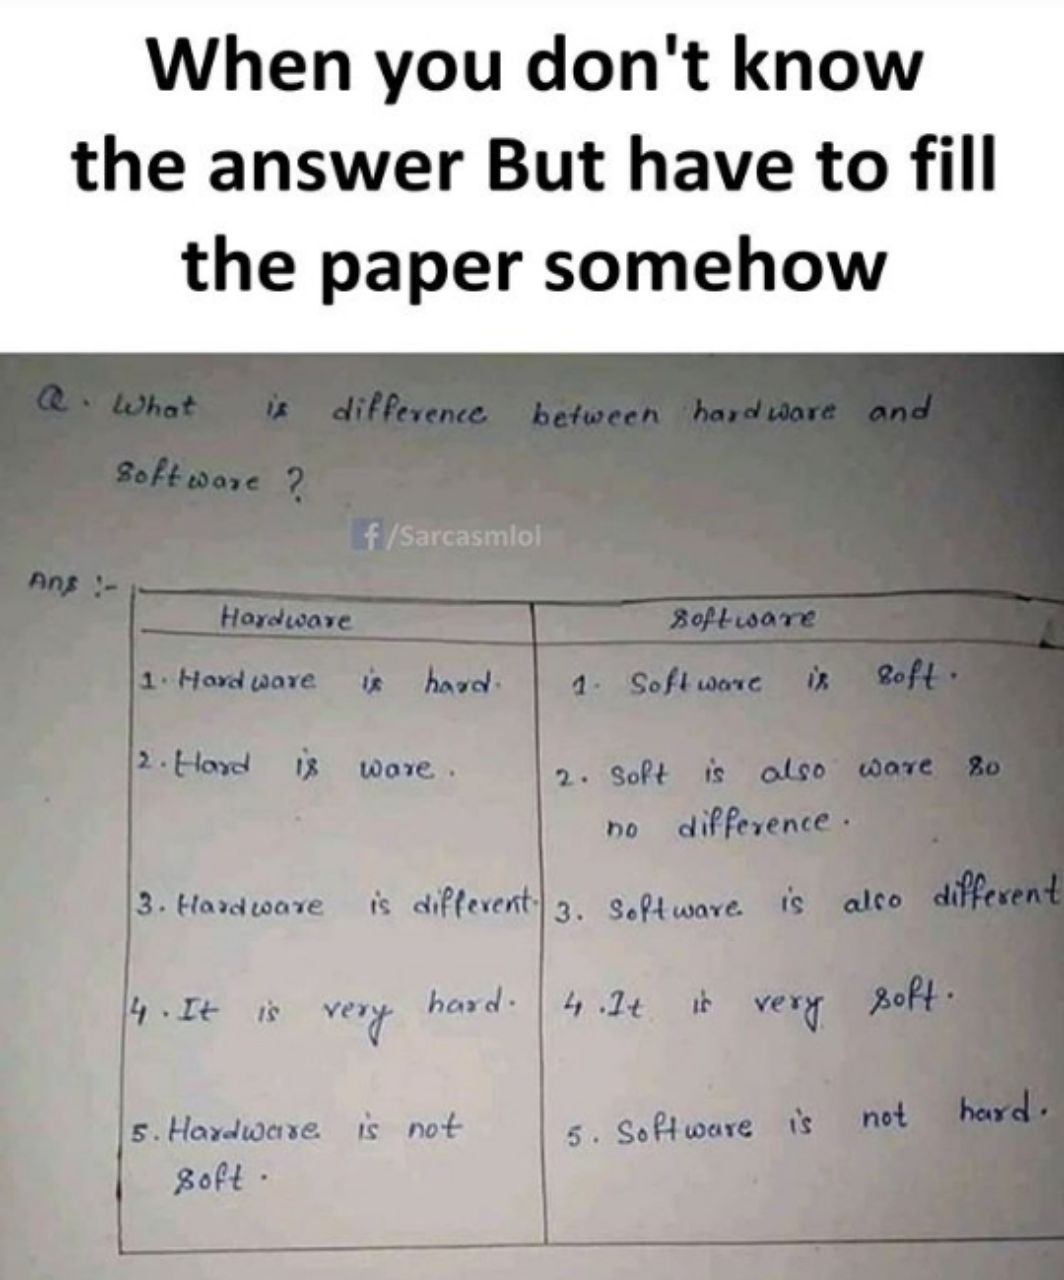 When you don't know
the answer But have to fill
the paper somehow
Q. What is difference between hardware and
Software ?
f/Sarcasmlol
Ans :-
Hardware Software
1. Hardware is hard. 1. Software is soft.
2. Hard is ware. 2. Soft is also ware so
no difference.
3. Hardware is different. 3. Software is also different
4. It is very hard. 4. It is very soft.
5. Hardware is not 5. Software is not hard.
soft.